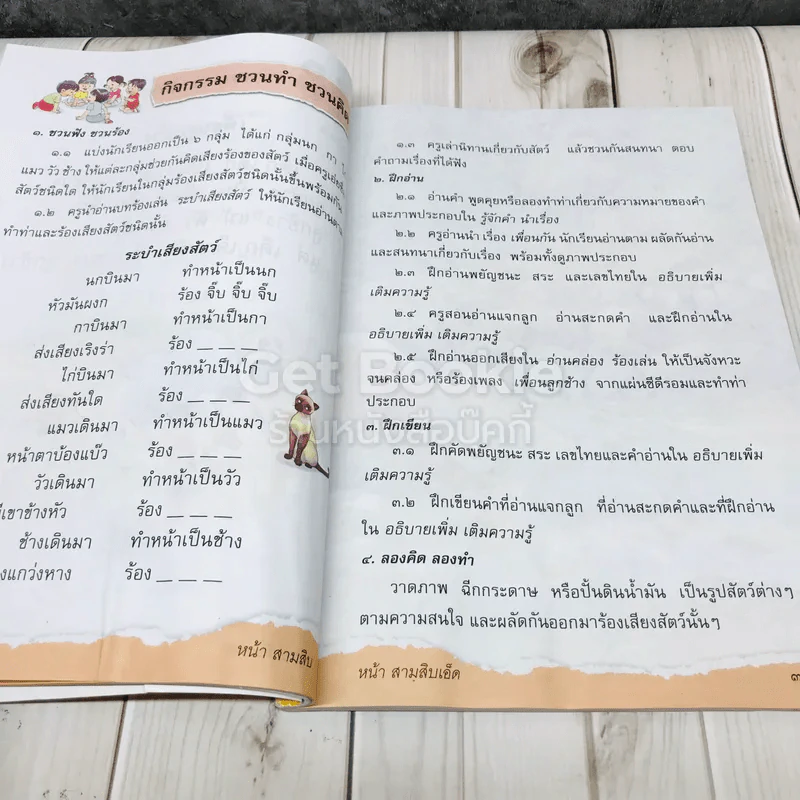 กิจกรรม ชวนทำ ชวนคิด
๑. ชวนฟัง ชวนร้อง
๑.๑ แบ่งนักเรียนออกเป็น ๖ กลุ่ม ได้แก่ กลุ่มนก กา
แมว วัว ช้าง ให้แต่ละกลุ่มช่วยกันคิดเสียงร้องของสัตว์ เมื่อครูเอ่ยชื่อ
สัตว์ชนิดใด ให้นักเรียนในกลุ่มร้องเสียงสัตว์ชนิดนั้นขึ้นพร้อมกัน
๑.๒ ครูนำอ่านบทร้องเล่น ระบำเสียงสัตว์ ให้นักเรียนอ่านตาม
ทำท่าและร้องเสียงสัตว์ชนิดนั้น
ระบำเสียงสัตว์
นกบินมา ทำหน้าเป็นนก
หัวมันผงก ร้อง จิ๊บ จิ๊บ จิ๊บ
กาบินมา ทำหน้าเป็นกา
ส่งเสียงเริงร่า ร้อง _ _ _
ไก่บินมา ทำหน้าเป็นไก่
ส่งเสียงทันใด ร้อง _ _ _
แมวเดินมา ทำหน้าเป็นแมว
หน้าตาบ้องแบ๊ว ร้อง _ _ _
วัวเดินมา ทำหน้าเป็นวัว
มีเขาข้างหัว ร้อง _ _ _
ช้างเดินมา ทำหน้าเป็นช้าง
แกว่งหาง ร้อง _ _ _
หน้า สามสิบ
๑.๓ ครูเล่านิทานเกี่ยวกับสัตว์ แล้วชวนกันสนทนา ตอบ
คำถามเรื่องที่ได้ฟัง
๒. ฝึกอ่าน
๒.๑ อ่านคำ พูดคุยหรือลองทำท่าเกี่ยวกับความหมายของคำ
และภาพประกอบใน รู้จักคำ นำเรื่อง
๒.๒ ครูอ่านนำ เรื่อง เพื่อนกัน นักเรียนอ่านตาม ผลัดกันอ่าน
และสนทนาเกี่ยวกับเรื่อง พร้อมทั้งดูภาพประกอบ
๒.๓ ฝึกอ่านพยัญชนะ สระ และเลขไทยใน อธิบายเพิ่ม
เติมความรู้
๒.๔ ครูสอนอ่านแจกลูก อ่านสะกดคำ และฝึกอ่านใน
อธิบายเพิ่ม เติมความรู้
๒.๕ ฝึกอ่านออกเสียงใน อ่านคล่อง ร้องเล่น ให้เป็นจังหวะ
จนคล่อง หรือร้องเพลง เพื่อนลูกช้าง จากแผ่นซีดีรอมและทำท่า
ประกอบ
๓. ฝึกเขียน
๓.๑ ฝึกคัดพยัญชนะ สระ เลขไทยและคำอ่านใน อธิบายเพิ่ม
เติมความรู้
๓.๒ ฝึกเขียนคำที่อ่านแจกลูก ที่อ่านสะกดคำและที่ฝึกอ่าน
ใน อธิบายเพิ่ม เติมความรู้
๔. ลองคิด ลองทำ
วาดภาพ ฉีกกระดาษ หรือปั้นดินน้ำมัน เป็นรูปสัตว์ต่างๆ
ตามความสนใจ และผลัดกันออกมาร้องเสียงสัตว์นั้นๆ
หน้า สามสิบเอ็ด
Get Bookie
ร้านหนังสือบุ๊คกี้